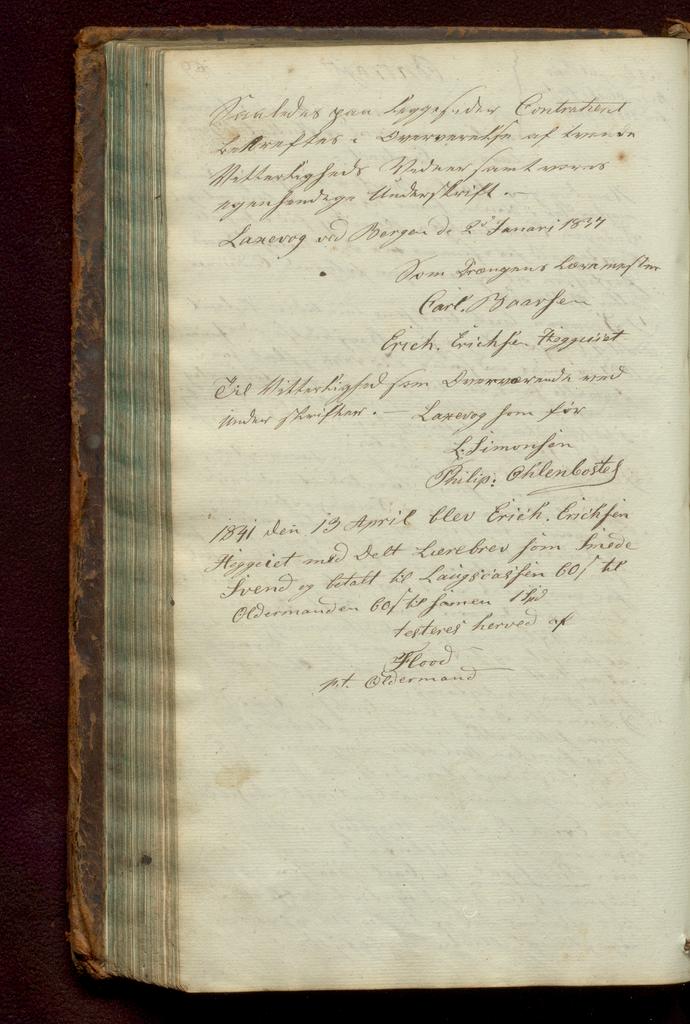 Saaledes paa begge sider Contrahert
bekreftes i Overværelse af tvende
Vitterligheds Vidner samt vores
egenhendige Underskrift. –
Laxevog ved Bergen de 2d Januari 1837
Som Drængens Læremester
Carl. Baarsen
Erich. Erichsen Heggeiet
Til Vitterlighed som Overværende ved
Underskriften. – Laxevog som før
L. Simonsen
Philip: Ohlenbostel
1841 den 13 April blev Erich. Erichsen
Heggeiet med Delt Lærebrev som Smede
Svend og betalt til Laugscassen 60 s til
Oldermanden 60 s til samen 1 Spd
testeres herved af
Flood
p.t. Oldermand